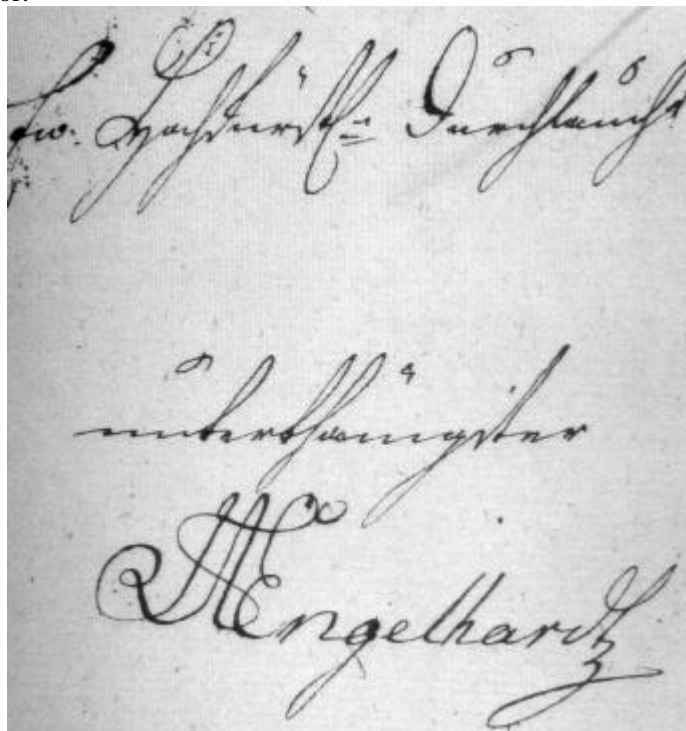 Ew. Hochfürstl: Durchlaucht
unterthänigster
Engelhardt